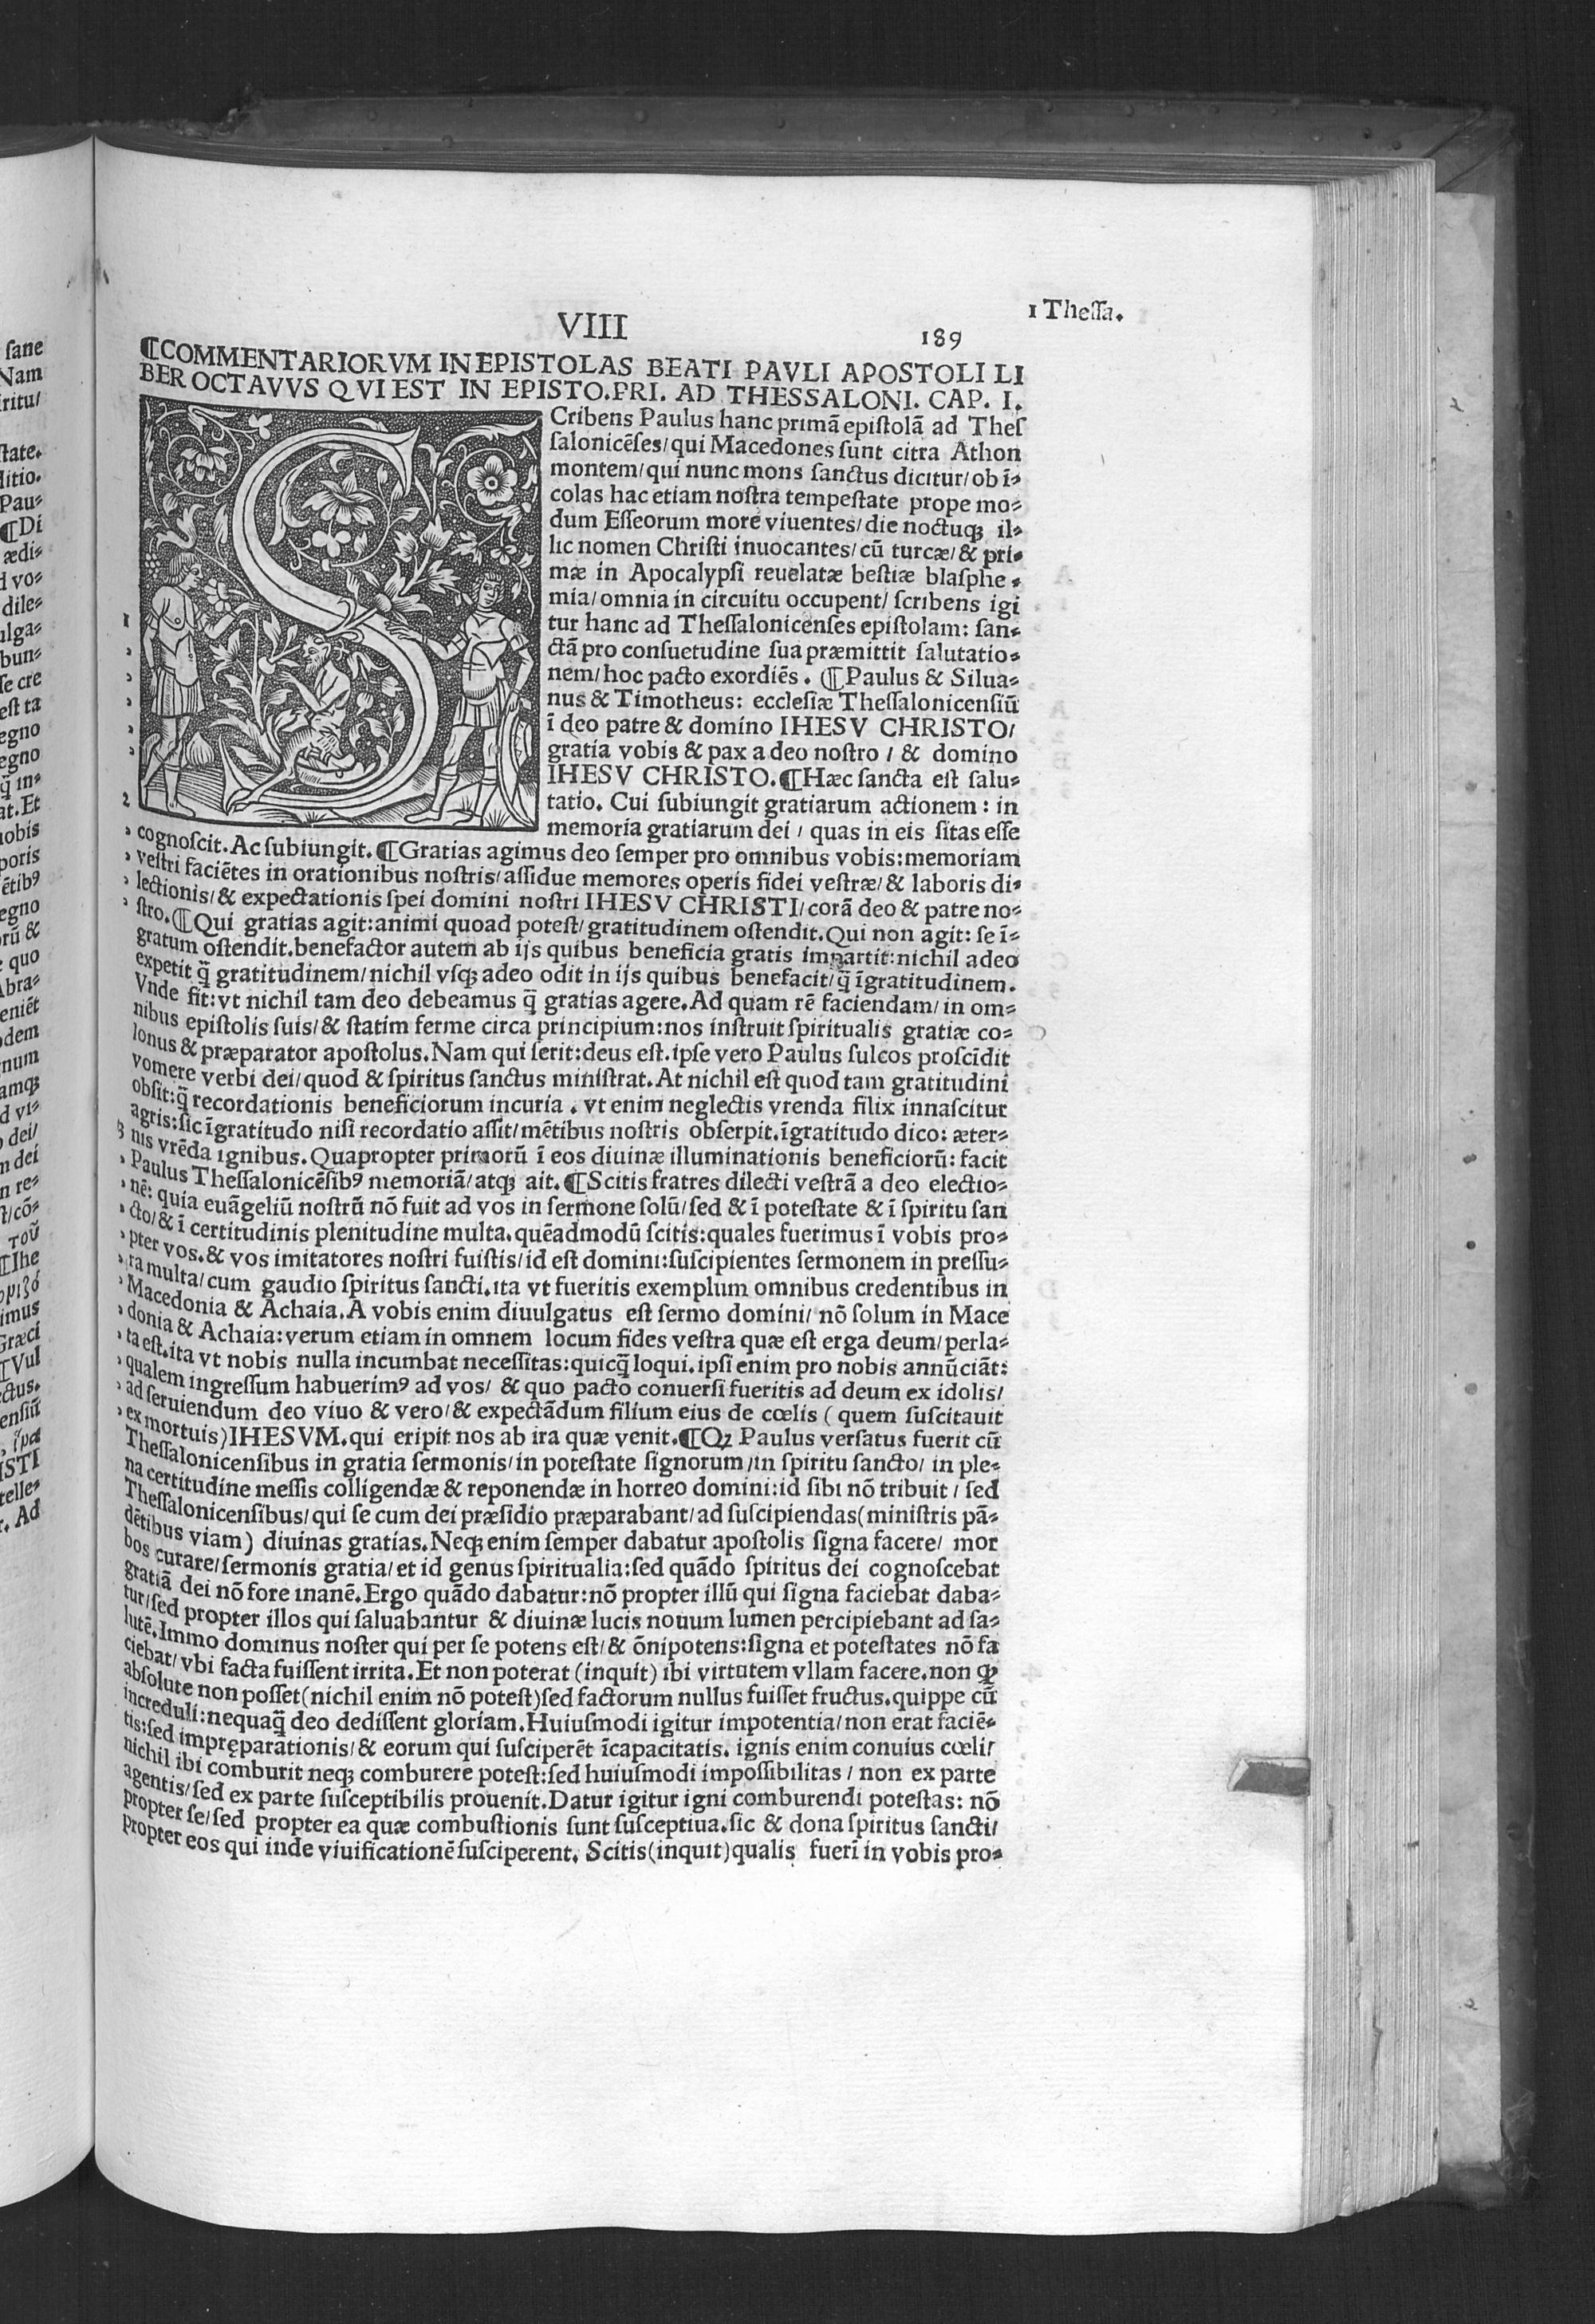 VIII
189
1 Thessa.
¶COMMENTARIORVM IN EPISTOLAS BEATI PAVLI APOSTOLI LI
BER OCTAVVS QVI EST IN EPISTO.PRI. AD THESSALONI. CAP. I.
SCribens Paulus hanc primā epistolā ad Thes
salonicēses/qui Macedones sunt citra Athon
montem/qui nunc mons sanctus dicitur/ob ī-
colas hac etiam nostra tempestate prope mo-
dum Esseorum more viuentes/die noctuqꝫ il-
lic nomen Christi inuocantes/cū turcæ/& pri-
mæ in Apocalypsi reuelatæ bestiæ blasphe-
mia/omnia in circuitu occupent/scribens igi
tur hanc ad Thessalonicenses epistolam: san-
ctā pro consuetudine sua præmittit salutatio-
nem/hoc pacto exordiēs. ¶Paulus & Silua-
nus & Timotheus: ecclesiæ Thessalonicensiū
ī deo patre & domino IHESV CHRISTO/
gratia vobis & pax a deo nostro / & domino
IHESV CHRISTO.¶Hæc sancta est salu-
tatio. Cui subiungit gratiarum actionem: in
memoria gratiarum dei / quas in eis sitas esse
cognoscit.Ac subiungit.¶Gratias agimus deo semper pro omnibus vobis:memoriam
vestri faciētes in orationibus nostris/assidue memores operis fidei vestræ/& laboris di-
lectionis/& expectationis spei domini nostri IHESV CHRISTI/corā deo & patre no-
stro.¶Qui gratias agit:animi quoad potest/gratitudinem ostendit.Qui non agit: se ī-
gratum ostendit.benefactor autem ab ijs quibus beneficia gratis impartit:nichil adeo
expetit q̃ gratitudinem/nichil vsqꝫ adeo odit in ijs quibus benefacit/q̃ īgratitudinem.
Vnde fit:vt nichil tam deo debeamus q̃ gratias agere.Ad quam rē faciendam/in om-
nibus epistolis suis/& statim ferme circa principium:nos instruit spiritualis gratiæ co-
lonus & præparator apostolus.Nam qui serit:deus est.ipse vero Paulus sulcos proscīdit
vomere verbi dei/quod & spiritus sanctus ministrat.At nichil est quod tam gratitudini
obsit:q̃ recordationis beneficiorum incuria . vt enim neglectis vrenda filix innascitur
agris:sic īgratitudo nisi recordatio assit/mētibus nostris obserpit.īgratitudo dico: æter-
nis vrēda ignibus.Quapropter primorū ī eos diuinæ illuminationis beneficiorū: facit
Paulus Thessalonicēsibꝰ memoriā/atqꝫ ait.¶Scitis fratres dilecti vestrā a deo electio-
nē: quia euāgeliū nostrū nō fuit ad vos in sermone solū/sed & ī potestate & ī spiritu san
cto/& ī certitudinis plenitudine multa.quēadmodū scitis:quales fuerimus ī vobis pro-
pter vos.& vos imitatores nostri fuistis/id est domini:suscipientes sermonem in pressu-
ra multa/cum gaudio spiritus sancti.ita vt fueritis exemplum omnibus credentibus in
Macedonia & Achaia.A vobis enim diuulgatus est sermo domini/ nō solum in Mace
donia & Achaia:verum etiam in omnem locum fides vestra quæ est erga deum/perla-
ta est.ita vt nobis nulla incumbat necessitas:quicq̃ loqui.ipsi enim pro nobis annūciāt:
qualem ingressum habuerimꝰ ad vos/ & quo pacto conuersi fueritis ad deum ex idolis/
ad seruiendum deo viuo & vero/& expectādum filium eius de cœlis (quem suscitauit
ex mortuis)IHESVM.qui eripit nos ab ira quæ venit.¶Qꝫ Paulus versatus fuerit cū
Thessalonicensibus in gratia sermonis/in potestate signorum/in spiritu sancto/ in ple-
na certitudine messis colligendæ & reponendæ in horreo domini:id sibi nō tribuit / sed
Thessalonicensibus/qui se cum dei præsidio præparabant/ad suscipiendas(ministris pā-
dētibus viam) diuinas gratias.Neqꝫ enim semper dabatur apostolis signa facere/ mor
bos curare/sermonis gratia/et id genus spiritualia:sed quādo spiritus dei cognoscebat
gratiā dei nō fore inanē.Ergo quādo dabatur:nō propter illū qui signa faciebat daba-
tur/sed propter illos qui saluabantur & diuinæ lucis nouum lumen percipiebant ad sa-
lutē.Immo dominus noster qui per se potens est/& ōnipotens:signa et potestates nō fa
ciebat/vbi facta fuissent irrita.Et non poterat (inquit) ibi virtutem vllam facere.non qꝫ
absolute non posset(nichil enim nō potest)sed factorum nullus fuisset fructus.quippe cū
increduli:nequaq̃ deo dedissent gloriam.Huiusmodi igitur impotentia/non erat faciē-
tis:sed impręparationis/& eorum qui susciperēt īcapacitatis. ignis enim conuius cœli/
nichil ibi comburit neqꝫ comburere potest:sed huiusmodi impossibilitas / non ex parte
agentis/sed ex parte susceptibilis prouenit.Datur igitur igni comburendi potestas: nō
propter se/sed propter ea quæ combustionis sunt susceptiua.sic & dona spiritus sancti/
propter eos qui inde viuificationē susciperent. Scitis(inquit)qualis fueri in vobis pro-